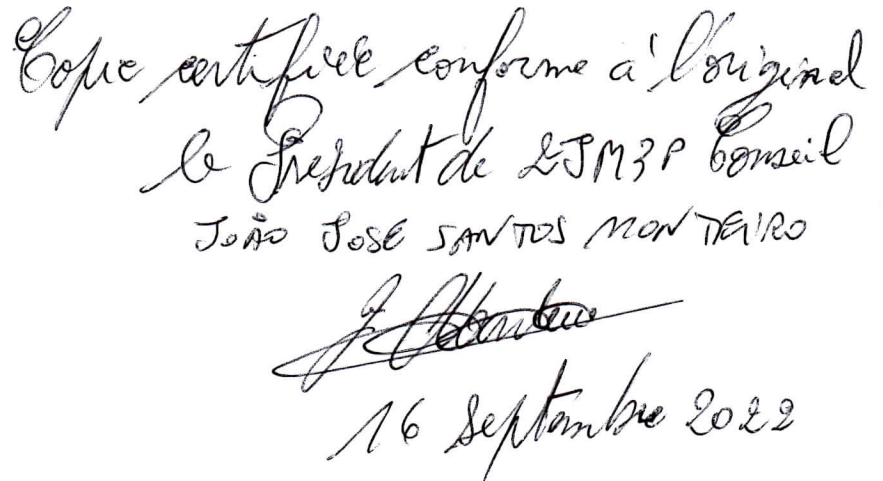 Copie certifiée conforme à l'original
le President de 2JM3P Conseil
JOÃO JOSÉ SANTOS MONTEIRO
16 septembre 2022